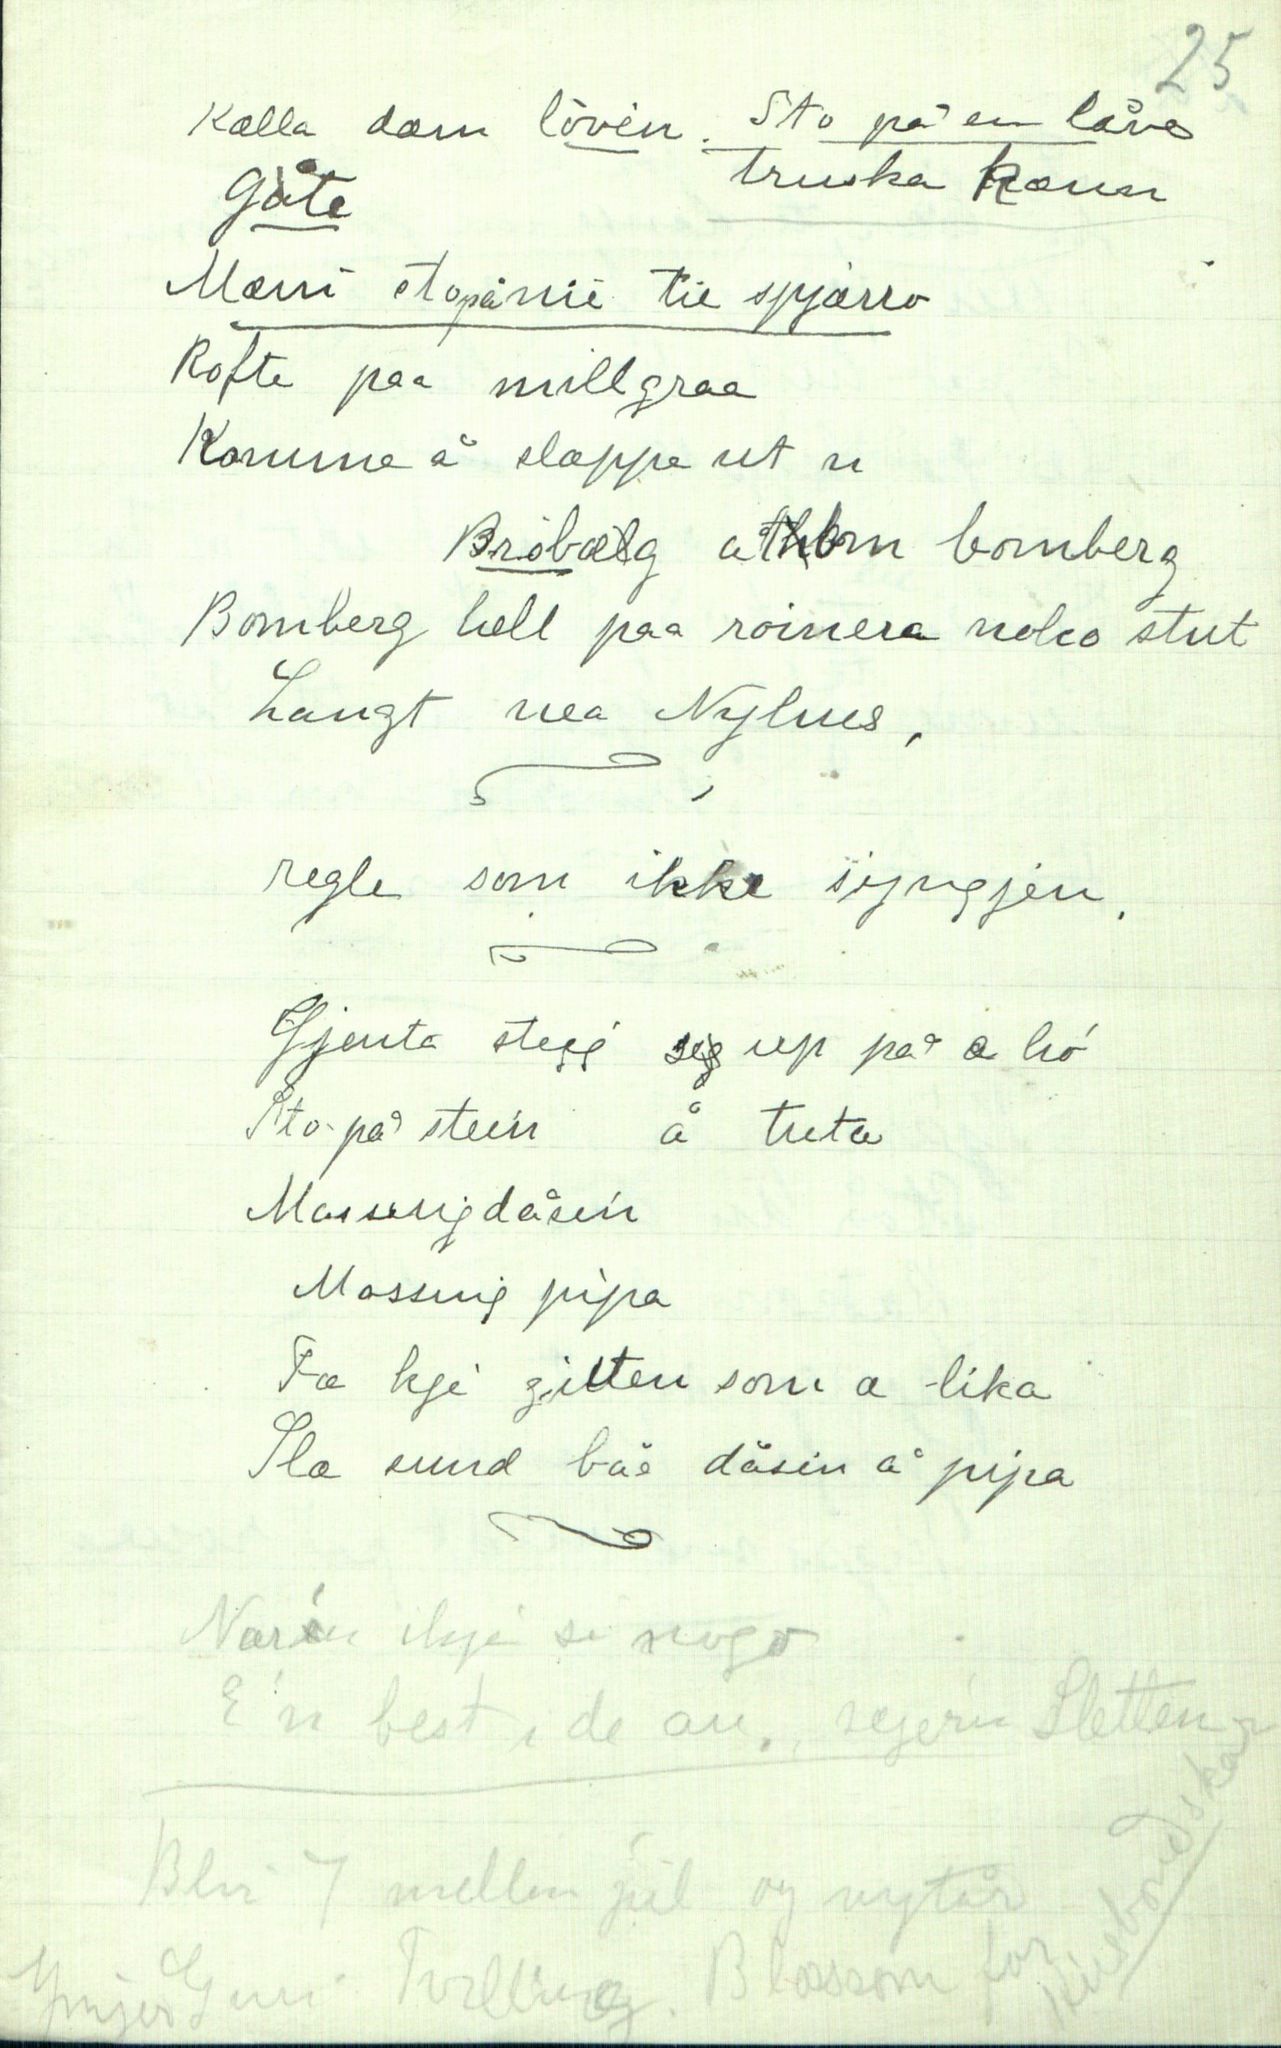 25
Kalla dam lövin. Sto på en låve
truska kaun
Gåte
Mami stopånie tie spjærro
Rofte paa millgraa
Komme å slappe ut n
Bröbælg bomberg
Bomberg hell paa roinera noko stut
Langt nea Nylnes,
regle som ikke syngjen.
Gjenta stegj seg up på a hö
Sto på stein å tuta
Massingdåsin
Massing pipa
Fæ kje gutten som a lika
Sla sund båe dåsin å pipa
Narin ikje si nogo
E'n best i de an., segerin Sletten
Blir 7 mellem jul og nytår
Guri Tvilling. Blossom for